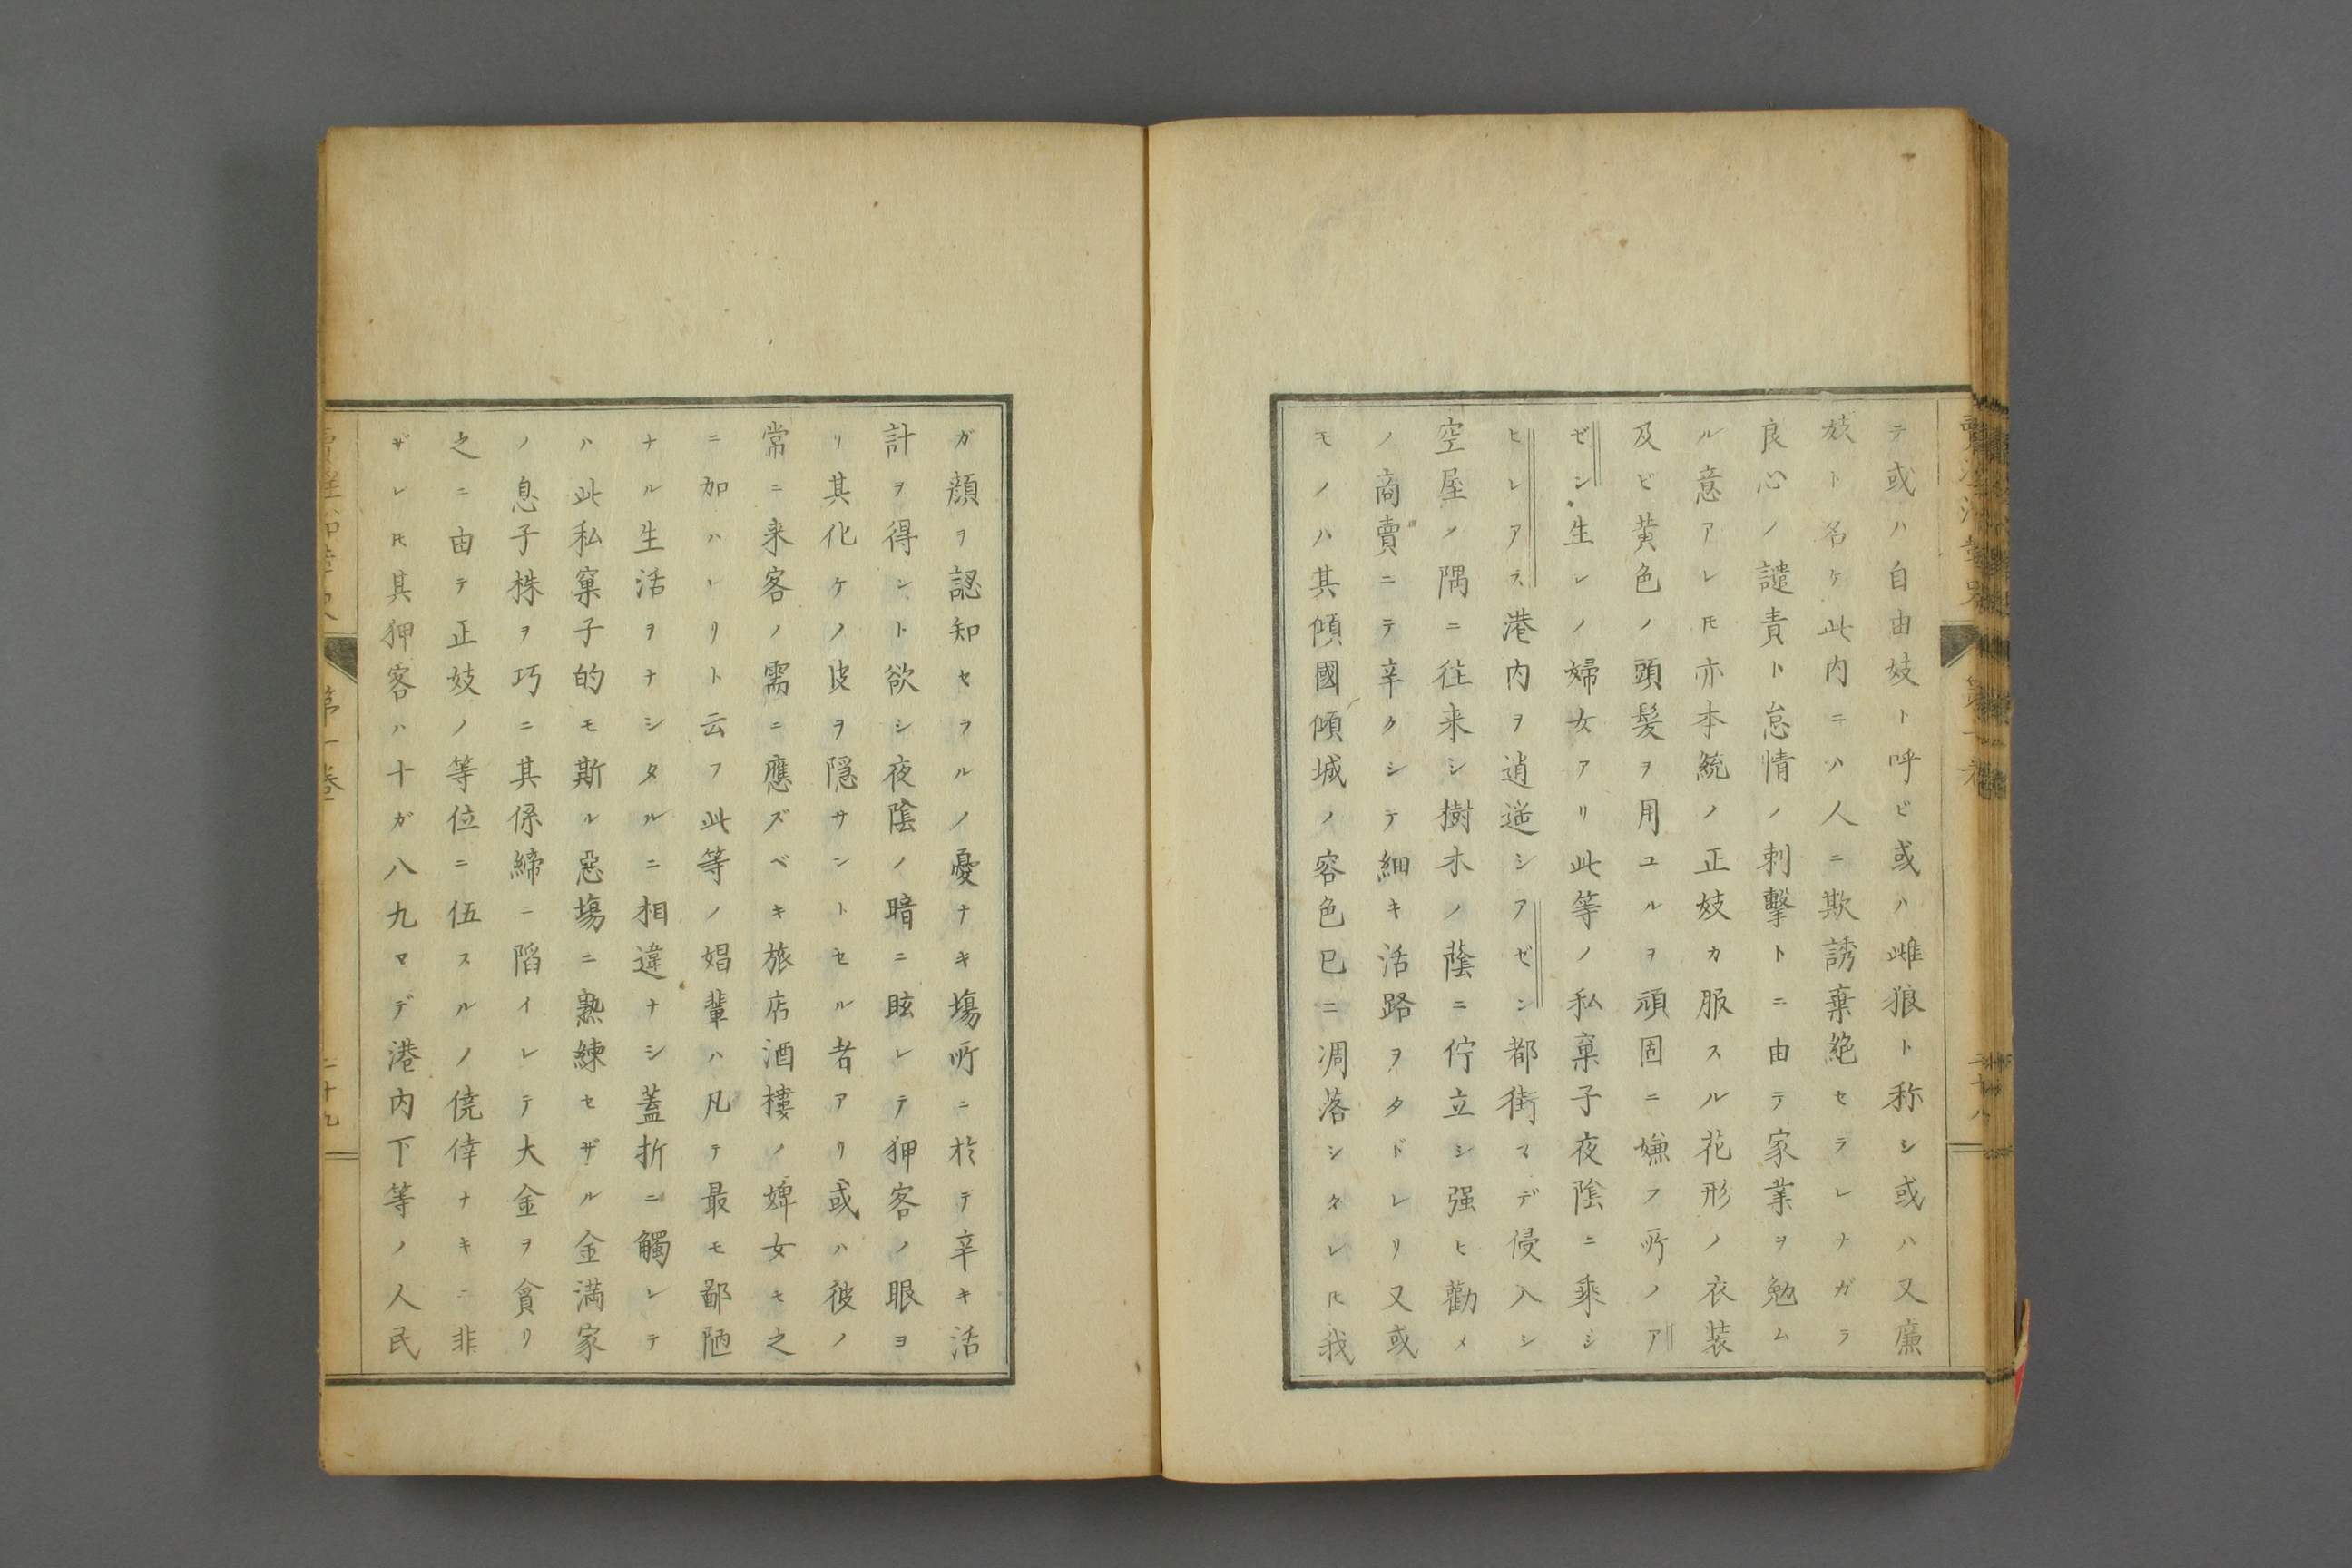 テ或ハ自由妓ト呼ビ或ハ雌狼ト称シ或ハ又廉
妓ト名ケ此内ニハ人ニ欺誘棄絶セラレナガラ
良心ノ譴責ト怠惰ノ刺擊トニ由テ家業ヲ勉ム
ル意アレ𪜈亦本統ノ正妓カ服スル花形ノ衣装
及ビ黄色ノ頭髪ヲ用ユルヲ頑固ニ嫌フ所ノア
ゼン生レノ婦女アリ此等ノ私窠子夜陰ニ乘シ
ヒレアス港内ヲ逍遥シアゼン都街マデ侵入シ
空屋ノ隅ニ往来シ樹木ノ蔭ニ佇立シ强ヒ勸メ
ノ商賣ニテ辛クシテ細キ活路ヲタドレリ又或
モノハ其傾國傾城ノ容色巳ニ凋落シタレ𪜈我
ガ顔ヲ認知セラルノ憂ナキ塲所ニ於テ辛キ活
計ヲ得ント欲シ夜陰ノ暗ニ眩レテ狎客ノ眼ヨ
リ其化ケノ皮ヲ隠サントセル者アリ或ハ彼ノ
常ニ来客ノ需ニ應ズベキ旅店酒樓ノ婢女モ之
ニ加ハレリト云フ此等ノ娼輩ハ凡テ最モ鄙陋
ナル生活ヲナシタルニ相違ナシ蓋折ニ觸レテ
ハ此私窠子的モ斯ル惡塲ニ熟練セザル金満家
ノ息子株ヲ巧ニ其係締ニ䧟イレテ大金ヲ貪リ
之ニ由テ正妓ノ等位ニ伍スルノ僥倖ナキニ非
ザレ𪜈其狎客ハ十ガ八九マデ港内下等ノ人民
第一巻
二十九